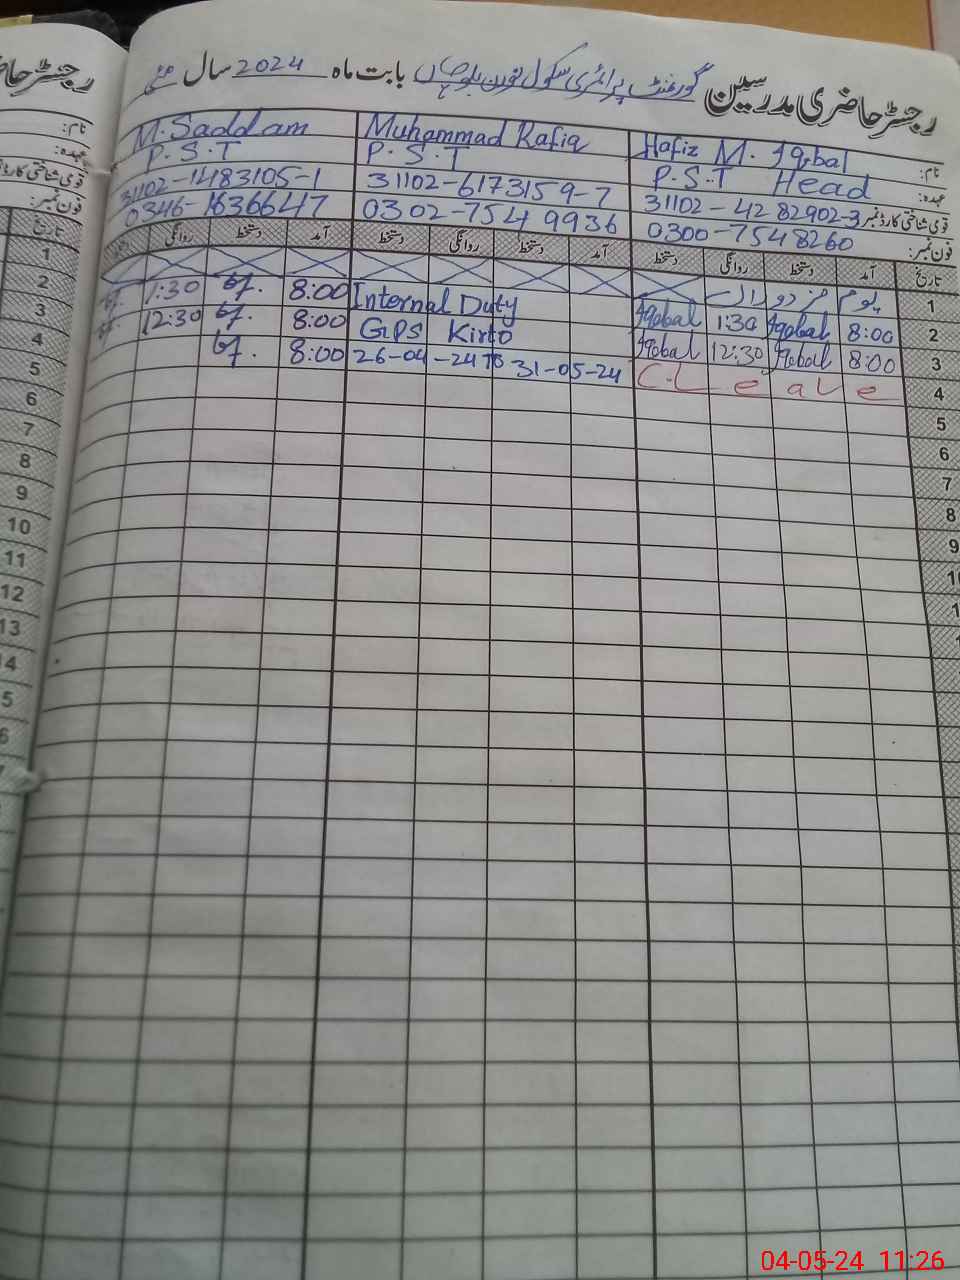 رجسٹر حاضری مدرسین گورنمنٹ پرائمری سکول بابت ماہ مئی سال 2024
نام: Hafiz M. Iqbal Muhammad Rafiq M. Saddam
عہدہ: P.S.T Head P.S.T P.S.T
قومی شناختی کارڈ نمبر 31102-4282902-3 31102-6173159-7 31102-1483105-1
فون نمبر: 0300-7548260 0302-7549936 0346-1636647
تاریخ آمد دستخط روانگی دستخط آمد دستخط روانگی دستخط آمد دستخط روانگی دستخط
1 یوم مزدوراں
2 8:00 Iqbal 1:30 Iqbal Internal Duty 8:00 1:30
3 8:00 Iqbal 12:30 Iqbal GPS Kirto 8:00 12:30
4 C.L eave 26-04-24 To 31-05-24 8:00
5
6
7
8
9
رجسٹر حا
نام:
عہدہ:
قومی شناختی کارڈ
فون نمبر:
تاریخ
1
2
3
4
5
6
7
8
9
10
11
12
13
04-05-24 11:26